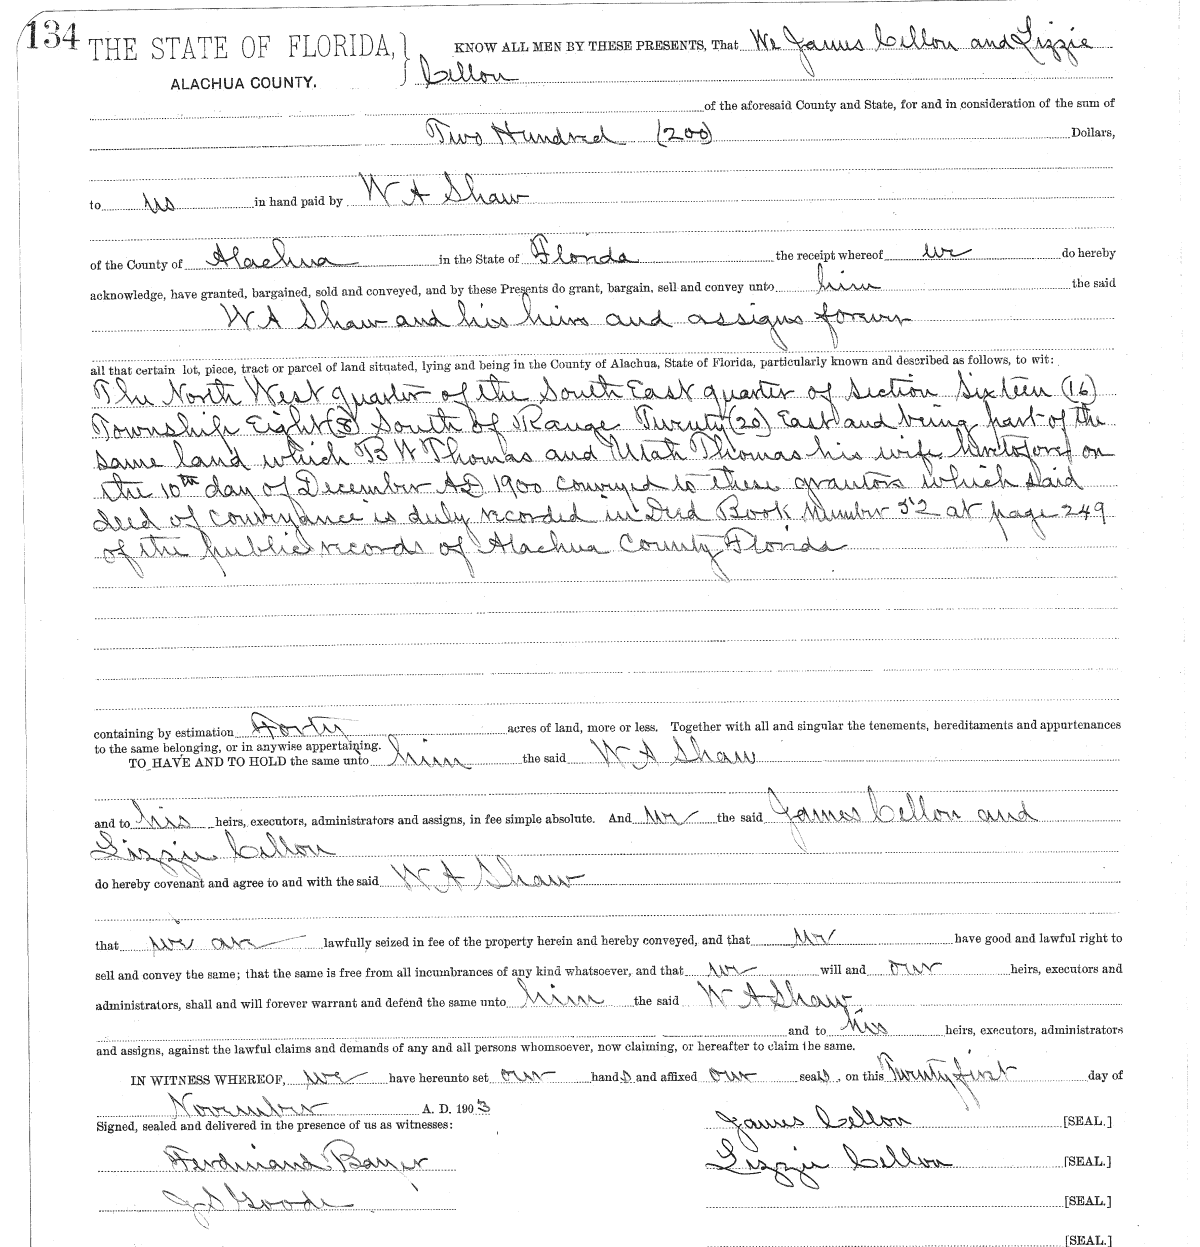 134
THE STATE OF FLORIDA, } KNOW ALL MEN BY THESE PRESENTS, That We James Cellon and Lizzie
ALACHUA COUNTY. Cellon
of the aforesaid County and State, for and in consideration of the sum of
Two Hundred (200) Dollars,
to us in hand paid by W A Shaw
of the County of Alachua in the State of Florida the receipt whereof we do hereby
acknowledge, have granted, bargained, sold and conveyed, and by these Presents do grant, bargain, sell and convey unto him the said
W A Shaw and his heirs and assigns forever
all that certain lot, piece, tract or parcel of land situated, lying and being in the County of Alachua, State of Florida, particularly known and described as follows, to wit:
The North West quarter of the South East quarter of Section Sixteen (16)
Township Eight (8) South of Range Twenty (20) East and being part of the
same land which B W Thomas and Utah Thomas his wife heretofore on
the 10th day of December AD 1900 conveyed to these grantors which said
deed of conveyance is duly recorded in Deed Book Number 52 at page 249
of the public records of Alachua County Florida
containing by estimation Forty acres of land, more or less. Together with all and singular the tenements, hereditaments and appurtenances
to the same belonging, or in anywise appertaining.
TO HAVE AND TO HOLD the same unto him the said W A Shaw
and to his heirs, executors, administrators and assigns, in fee simple absolute. And we the said James Cellon and
Lizzie Cellon
do hereby covenant and agree to and with the said W A Shaw
that we are lawfully seized in fee of the property herein and hereby conveyed, and that we have good and lawful right to
sell and convey the same; that the same is free from all incumbrances of any kind whatsoever, and that we will and our heirs, executors and
administrators, shall and will forever warrant and defend the same unto him the said W A Shaw
and to his heirs, executors, administrators
and assigns, against the lawful claims and demands of any and all persons whomsoever, now claiming, or hereafter to claim the same.
IN WITNESS WHEREOF, we have hereunto set our hands and affixed our seals, on this Twenty first day of
November A. D. 1903
Signed, sealed and delivered in the presence of us as witnesses: James Cellon [SEAL.]
Ferdinand Bayer Lizzie Cellon [SEAL.]
J S Goode [SEAL.]
[SEAL.]